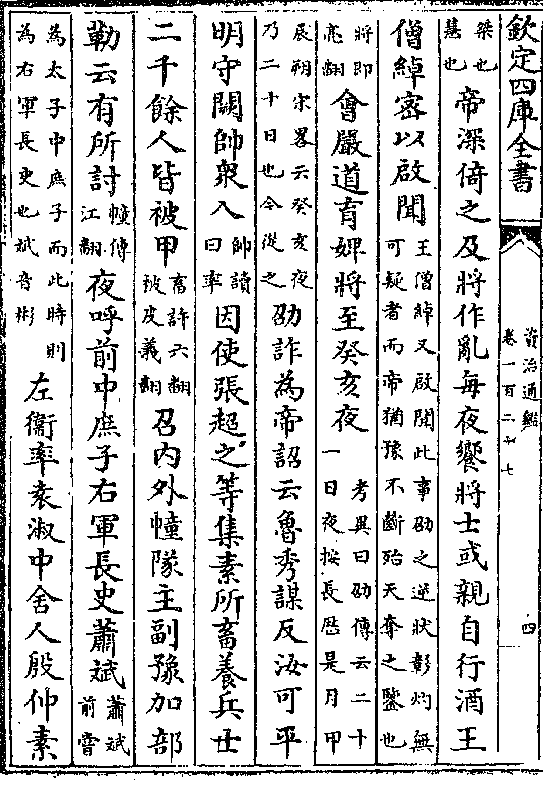 欽定四庫全書
資治通鑑
卷一百二十七
四
桀也慧也帝深倚之及將作亂每夜饗將士或親自行酒王
僧綽密以啟聞王僧綽又啟聞此事劭之逆狀彰灼無可疑者而帝猶豫不斷殆天奪之鑒也
將即亮翻會嚴道育婢將至癸亥夜考異曰劭傳云二十一日夜按長厯是月甲
辰朔宋畧云癸亥夜乃二十日也今從之劭詐為帝詔云魯秀謀反汝可平
明守闕帥衆入帥讀曰率因使張超之等集素所畜養兵士
二千餘人皆被甲畜許六翻被皮義翻召内外幢隊主副豫加部
勒云有所討幢傳江翻夜呼前中庶子右軍長史蕭斌蕭斌前嘗
為太子中庶子而此時則為右軍長史也斌音彬左衛率袁淑中舍人殷仲素